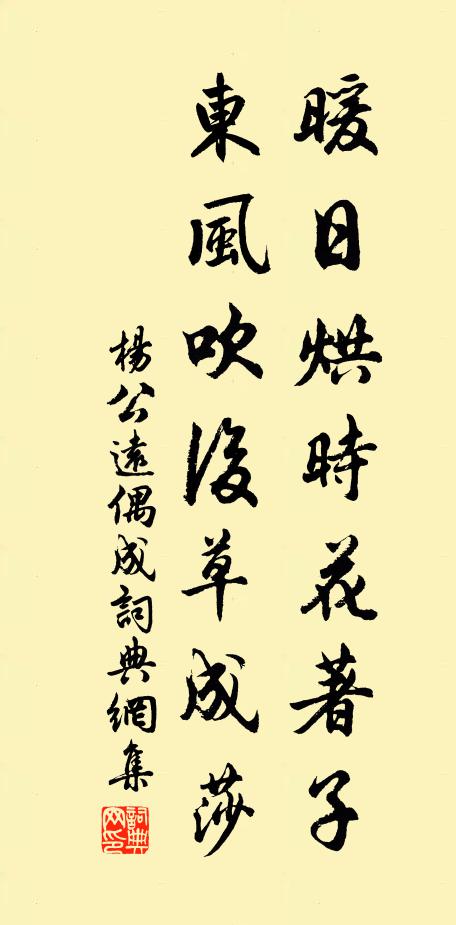 暖日烘時花著子
東風吹後草成莎
楊公遠偶成詞典網集
詞典網印